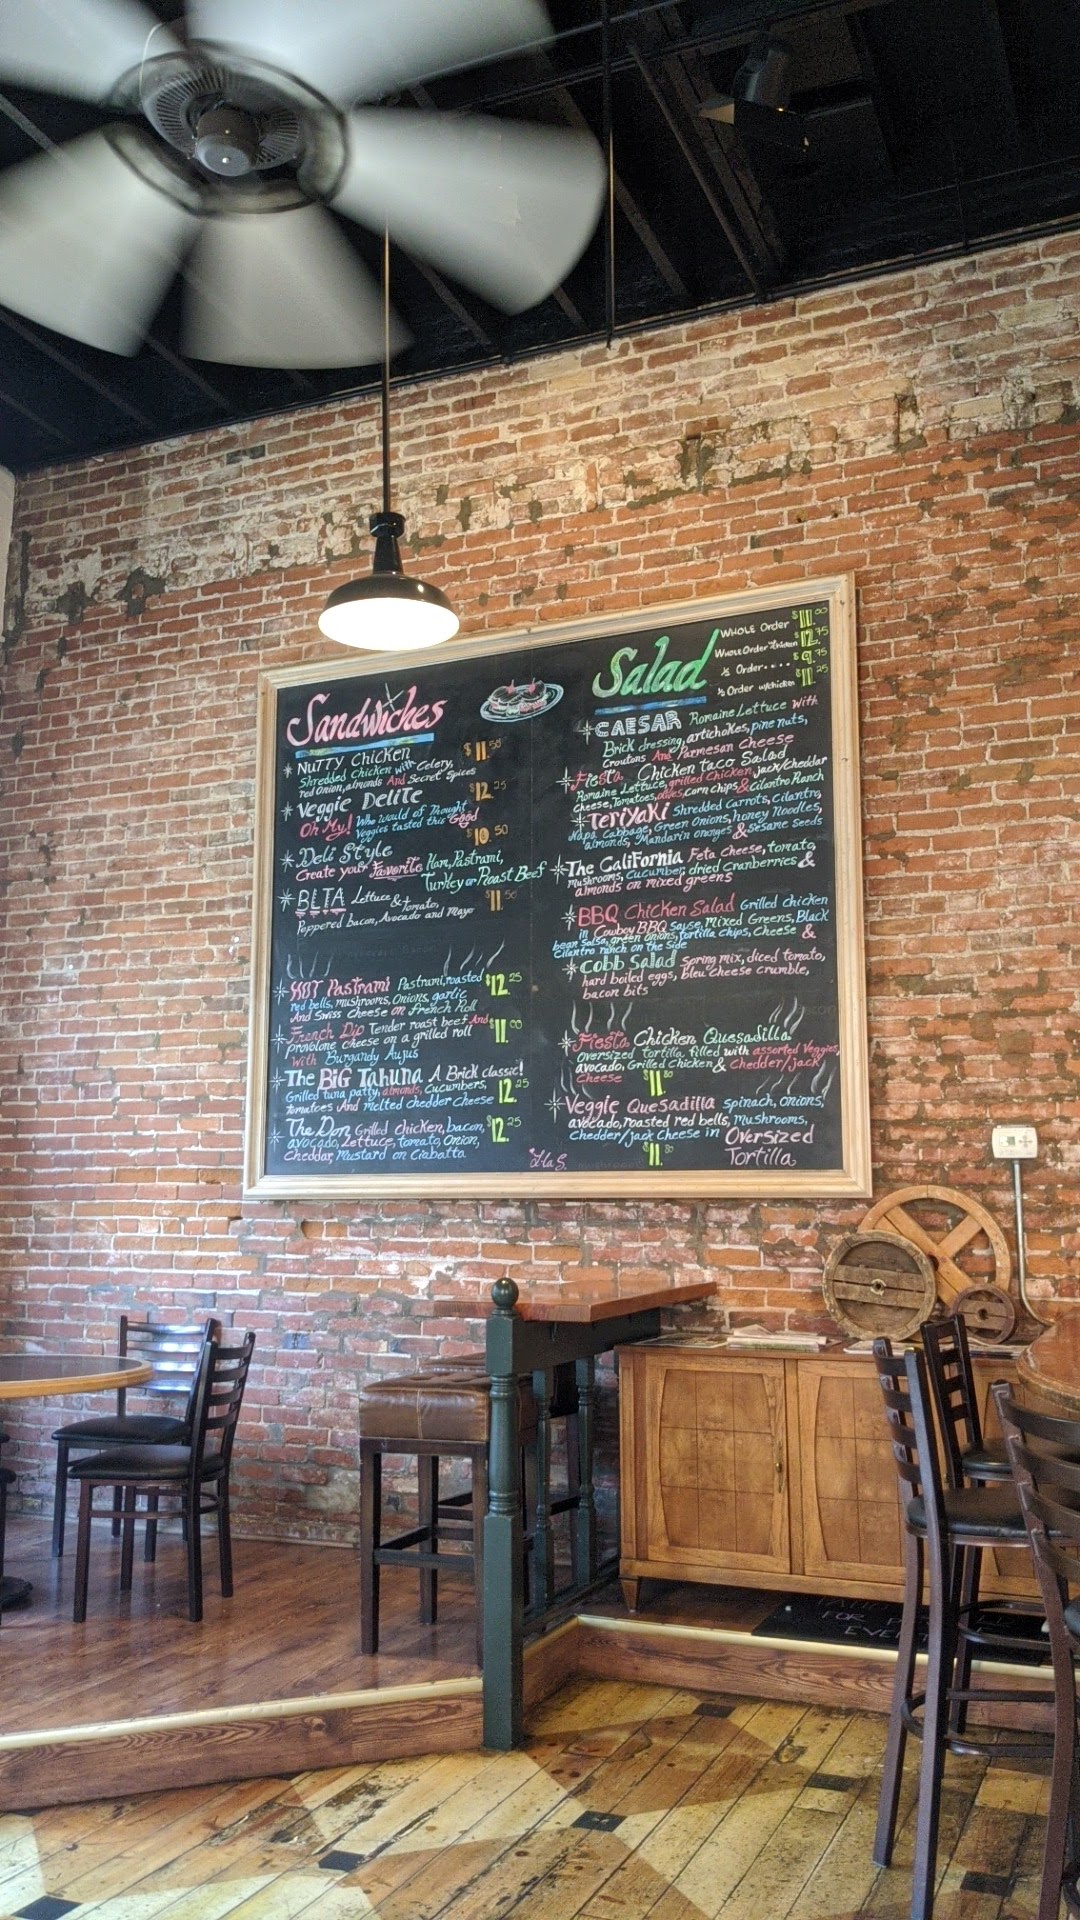 Sandwiches
Nutty Chicken $11.50
Shredded Chicken with Celery,
red Onion, almonds And Secret Spices
Veggie Delite $12.25
Oh My! Who Would of Thought
Veggies tasted this Good
Deli Style $10.50
Create your Favorite Ham, Pastrami,
Turkey or Roast Beef
BLTA Lettuce & Tomato, $11.50
Peppered bacon, Avocado and Mayo
HOT Pastrami Pastrami, roasted $12.25
red bells, mushrooms, Onions, garlic
And Swiss Cheese on french Roll
French Dip Tender roast beef And $11.00
provolone cheese on a grilled roll
with Burgandy Aujus
The BIG Tahuna A Brick classic!
Grilled tuna patty, almonds, Cucumbers, 12.25
tomatoes And melted chedder Cheese
The Don Grilled chicken, bacon, $12.25
avocado, Lettuce, tomato, Onion,
Cheddar, Mustard on Ciabatta
Salad
WHOLE Order $11.00
Whole Order Chicken $12.75
½ Order.... $9.75
½ Order w/chicken $11.25
CAESAR Romaine Lettuce With
Brick dressing, artichokes, pine nuts,
Croutons And Parmesan Cheese
Fiesta Chicken taco Salad
Romaine Lettuce, grilled Chicken, jack/cheddar
Cheese, Tomatoes, olives, corn chips & Cilantro Ranch
Teriyaki Shredded Carrots, Cilantro,
Napa Cabbage, Green Onions, honey Noodles,
almonds, Mandarin oranges & Sesame Seeds
The California Feta Cheese, tomato,
mushrooms, Cucumber, dried Cranberries &
almonds on mixed greens
BBQ Chicken Salad Grilled chicken
in Cowboy BBQ sause, Mixed Greens, Black
bean salsa, green onions, tortilla chips, cheese &
Cilantro ranch on the side
Cobb Salad spring mix, diced tomato,
hard boiled eggs, Bleu cheese crumble,
bacon bits
Fiesta Chicken Quesadilla
Oversized Tortilla filled with assorted Veggies,
avocado, Grilled Chicken & Chedder/jack
Cheese $11.80
Veggie Quesadilla spinach, onions,
avocado, roasted red bells, Mushrooms,
Chedder/jack Cheese in Oversized
$11.80 Tortilla